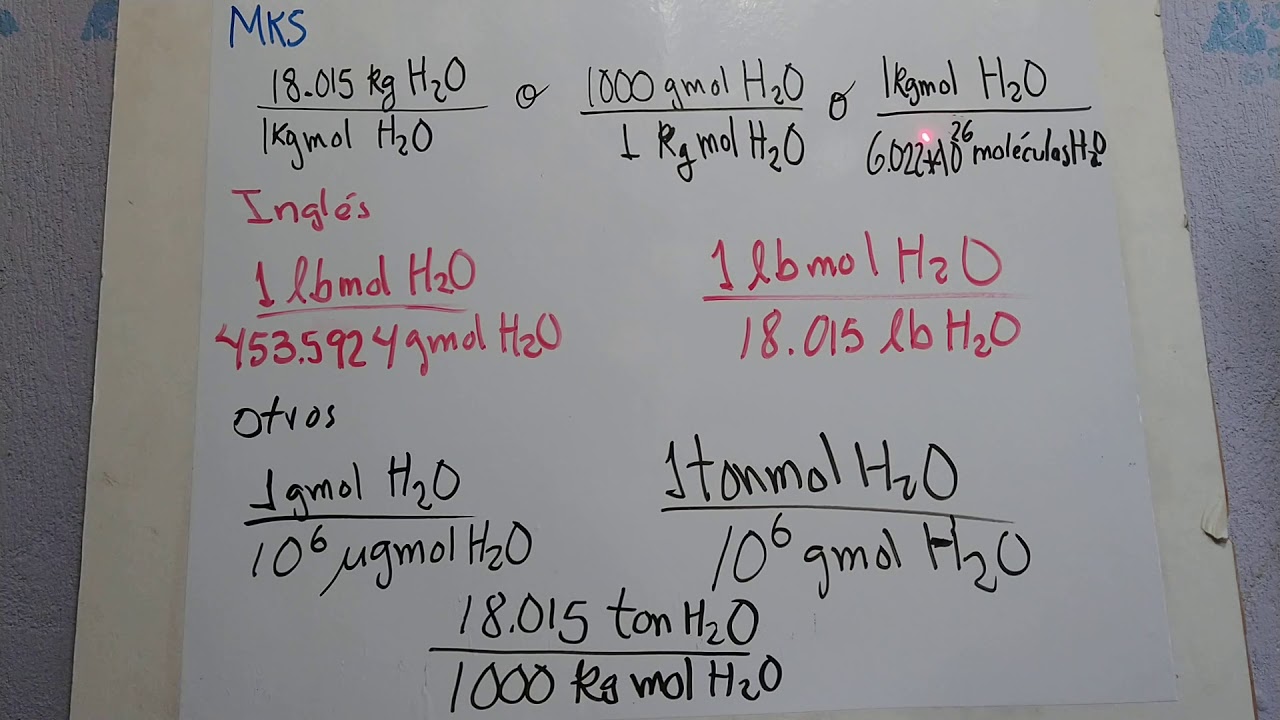 MKS
18.015 kg H₂O o 1000 gmol H₂O o 1kgmol H₂O
1Kgmol H₂O 1 Kgmol H₂O 6.022*10²⁶ moléculas H₂O
Inglés
1 lbmol H₂O 1 lbmol H₂O
453.5924 gmol H₂O 18.015 lb H₂O
Otros
1gmol H₂O 1 tonmol H₂O
10⁶ µgmol H₂O 10⁶ gmol H₂O
18.015 ton H₂O
1000 kgmol H₂O